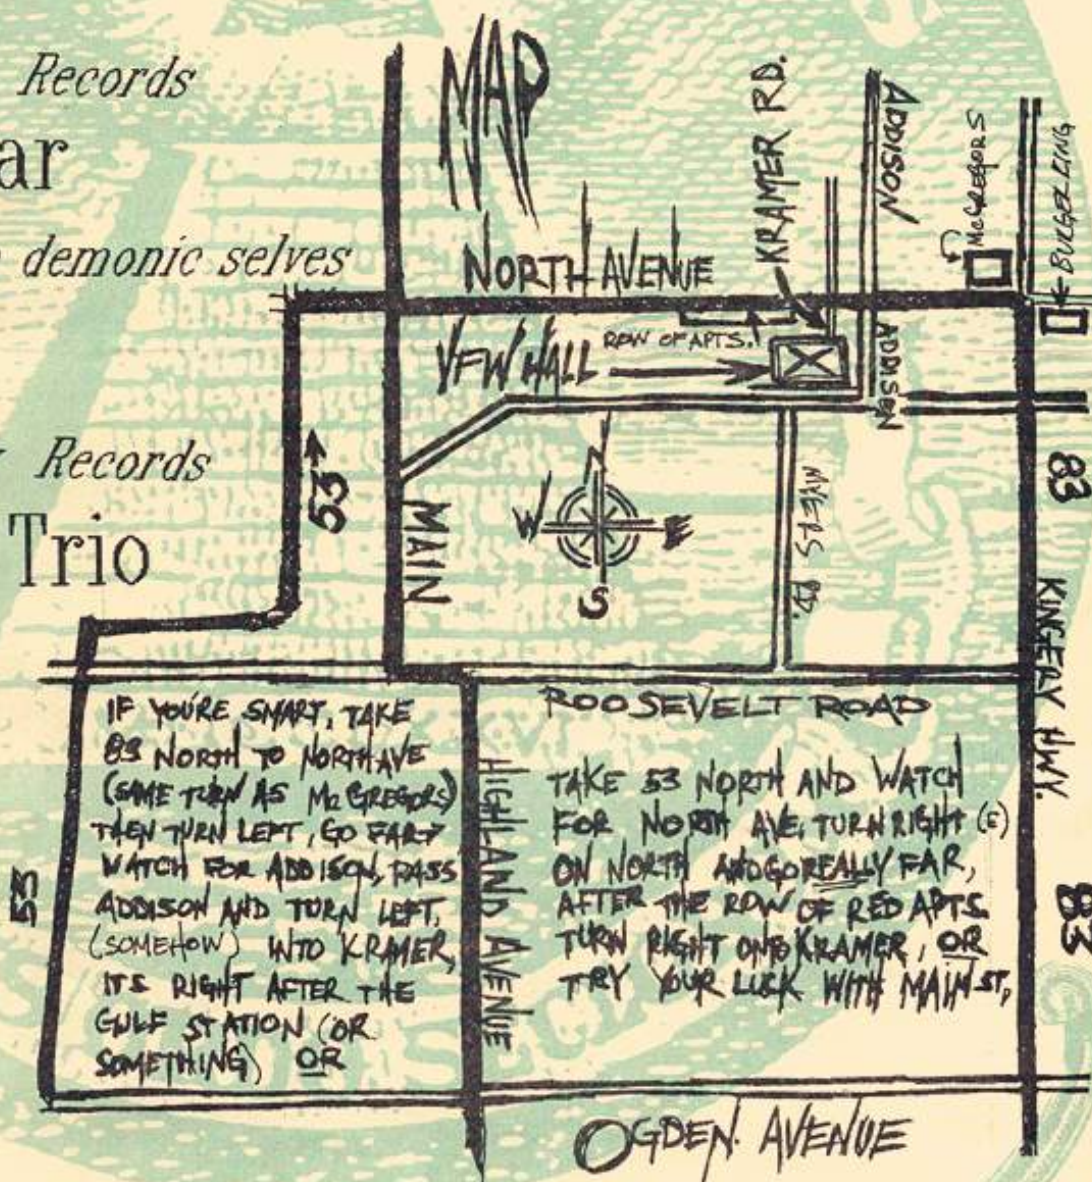 Records
ar
demonic selves
Records
Trio
MAP
KRAMER RD.
ADDISON
McGREGORS
BURGER KING
NORTH AVENUE
ROW OF APTS.
VFW HALL
ADDISON
53
MAIN
N
W
E
S
83
KINGERY HWY.
ROOSEVELT ROAD
IF YOU'RE SMART, TAKE
83 NORTH TO NORTH AVE
(SAME TURN AS McGREGORS)
THEN TURN LEFT, GO FAR &
WATCH FOR ADDISON, PASS
ADDISON AND TURN LEFT,
(SOMEHOW) INTO KRAMER,
IT'S RIGHT AFTER THE
GULF STATION (OR
SOMETHING) OR
HIGHLAND AVENUE
TAKE 53 NORTH AND WATCH
FOR NORTH AVE, TURN RIGHT (E)
ON NORTH AND GO REALLY FAR,
AFTER THE ROW OF RED APTS.
TURN RIGHT ONTO KRAMER, OR
TRY YOUR LUCK WITH MAIN ST,
53
83
OGDEN AVENUE